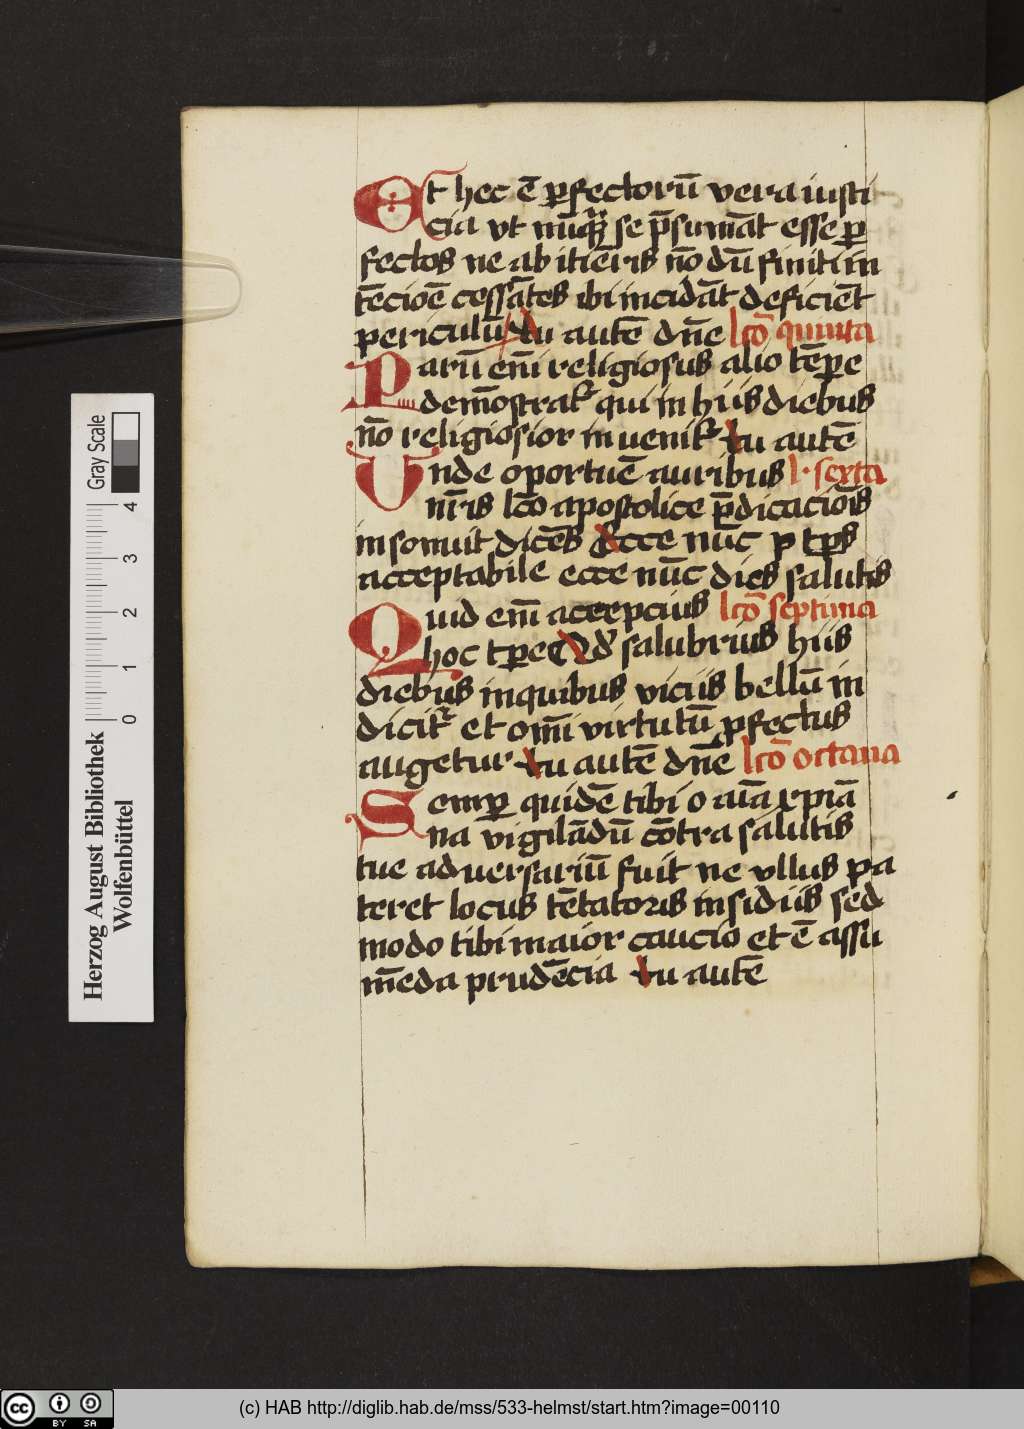 Et hec ē ꝑfectorū vera iusti
cia vt nūqͣꝫ se p̄sumāt esse ꝑ
fectos ne ab itīeris nō dū finiti in
tēcioē cessātes ibi incidāt deficiēt
periculū Tu autē dn̄e lcō quinta
Parū em̄ religiosus alio tēꝑe
demōstratͬ qui in hiis diebus
nō religiosior inuenitͬ tu autē
Vnde oportuē auribus l· sexta
nr̄is lcō apostolice p̄dicaciōis
insonuit dicēs Ecce nūc ꝑ tp̄s
acceptabile ecce nūc dies salutis
Quid em̄ accepcius lcō septima
hoc tꝑe Qͥd salubrius hiis
diebus in quibus viciis bellū in
dicitͬ et om̄i virtutū ꝓfectus
augetur tu autē dn̄e lcō octaua
Semꝑ quidē tibi o aīa xp̄ia
na vigilādū cōtra salutis
tue aduersariū fuit ne vllus pa
teret locus tētatoris insidiis sed
modo tibi maior caucio et ē assu
mēda prudēcia tu autē
Gray Scale
4
3
2
1
0
Herzog August Bibliothek
Wolfenbüttel
cc BY SA
(c) HAB http://diglib.hab.de/mss/533-helmst/start.htm?image=00110